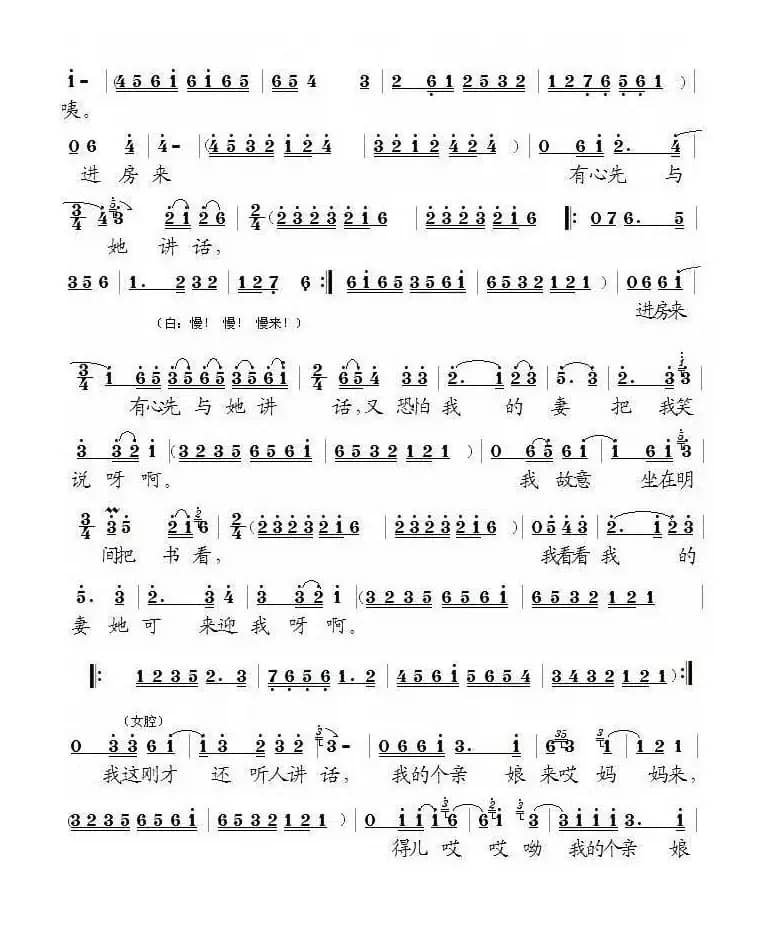 i - | (4 5 6 i 6 i 6 5 | 6 5 4 3 | 2 6 1 2 5 3 2 | 1 2 7 6 5 6 1 )
咦。
0 6 4 | 4 - | (4 5 3 2 1 2 4 | 3 2 1 2 4 2 4 ) | 0 6 i 2. 4
进 房 来 有心先 与
3/4 4 3 2 i 2 6 | 2/4 (2 3 2 3 2 i 6 | 2 3 2 3 2 i 6 ‖: 0 7 6. 5
她 讲 话,
3 5 6 | 1. 2 3 2 | 1 2 7 6 :‖ 6 i 6 5 3 5 6 i | 6 5 3 2 1 2 1 ) | 0 6 6 i
(白:慢! 慢! 慢来!) 进房来
3/4 i 6 5 3 5 6 5 3 5 6 i | 2/4 6 5 4 3 3 | 2. i 2 3 | 5. 3 | 2. 3 3
有心先 与她讲 话,又 恐怕 我 的 妻 把 我笑
3 3 2 i | (3 2 3 5 6 5 6 i | 6 5 3 2 1 2 1 ) | 0 6 5 6 i | i 6 i 3
说 呀 啊。 我 故意 坐在明
3/4 3 5 2 i 6 | 2/4 (2 3 2 3 2 i 6 | 2 3 2 3 2 i 6 ) | 0 5 4 3 | 2. i 2 3
间把 书 看, 我看看 我 的
5. 3 | 2. 3 4 | 3 3 2 i | (3 2 3 5 6 5 6 i | 6 5 3 2 1 2 1
妻 她 可 来迎 我 呀 啊。
‖: 1 2 3 5 2. 3 | 7 6 5 6 1. 2 | 4 5 6 i 5 6 5 4 | 3 4 3 2 1 2 1 ) :‖
(女腔)
0 3 3 6 i | i 3 2 3 2 | 3 - | 0 6 6 i 3. i | 6 3 i | 1 2 1
我这刚才 还 听人讲 话, 我的个亲 娘 来哎 妈 妈来,
(3 2 3 5 6 5 6 i | 6 5 3 2 1 2 1 ) | 0 i i i 6 | 6 i 3 | 3 i i i 3. i
得儿 哎 哎 呦 我的个亲 娘